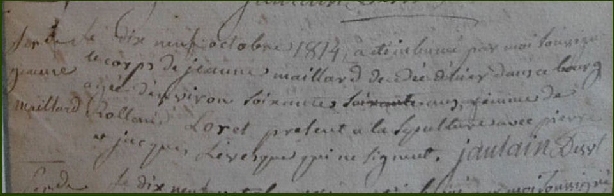 le dix neuf octobre 1814, a été inhumé par moi soussigné
le corps de jeanne maillard decédé hier dans ce bourg
agée denviron soixante soixante ans, femme de
maillard Rolland Loret présent a la sepulture avec pierre
et jacques Lévesque qui ne signent. jautain Desst
le dix neuf